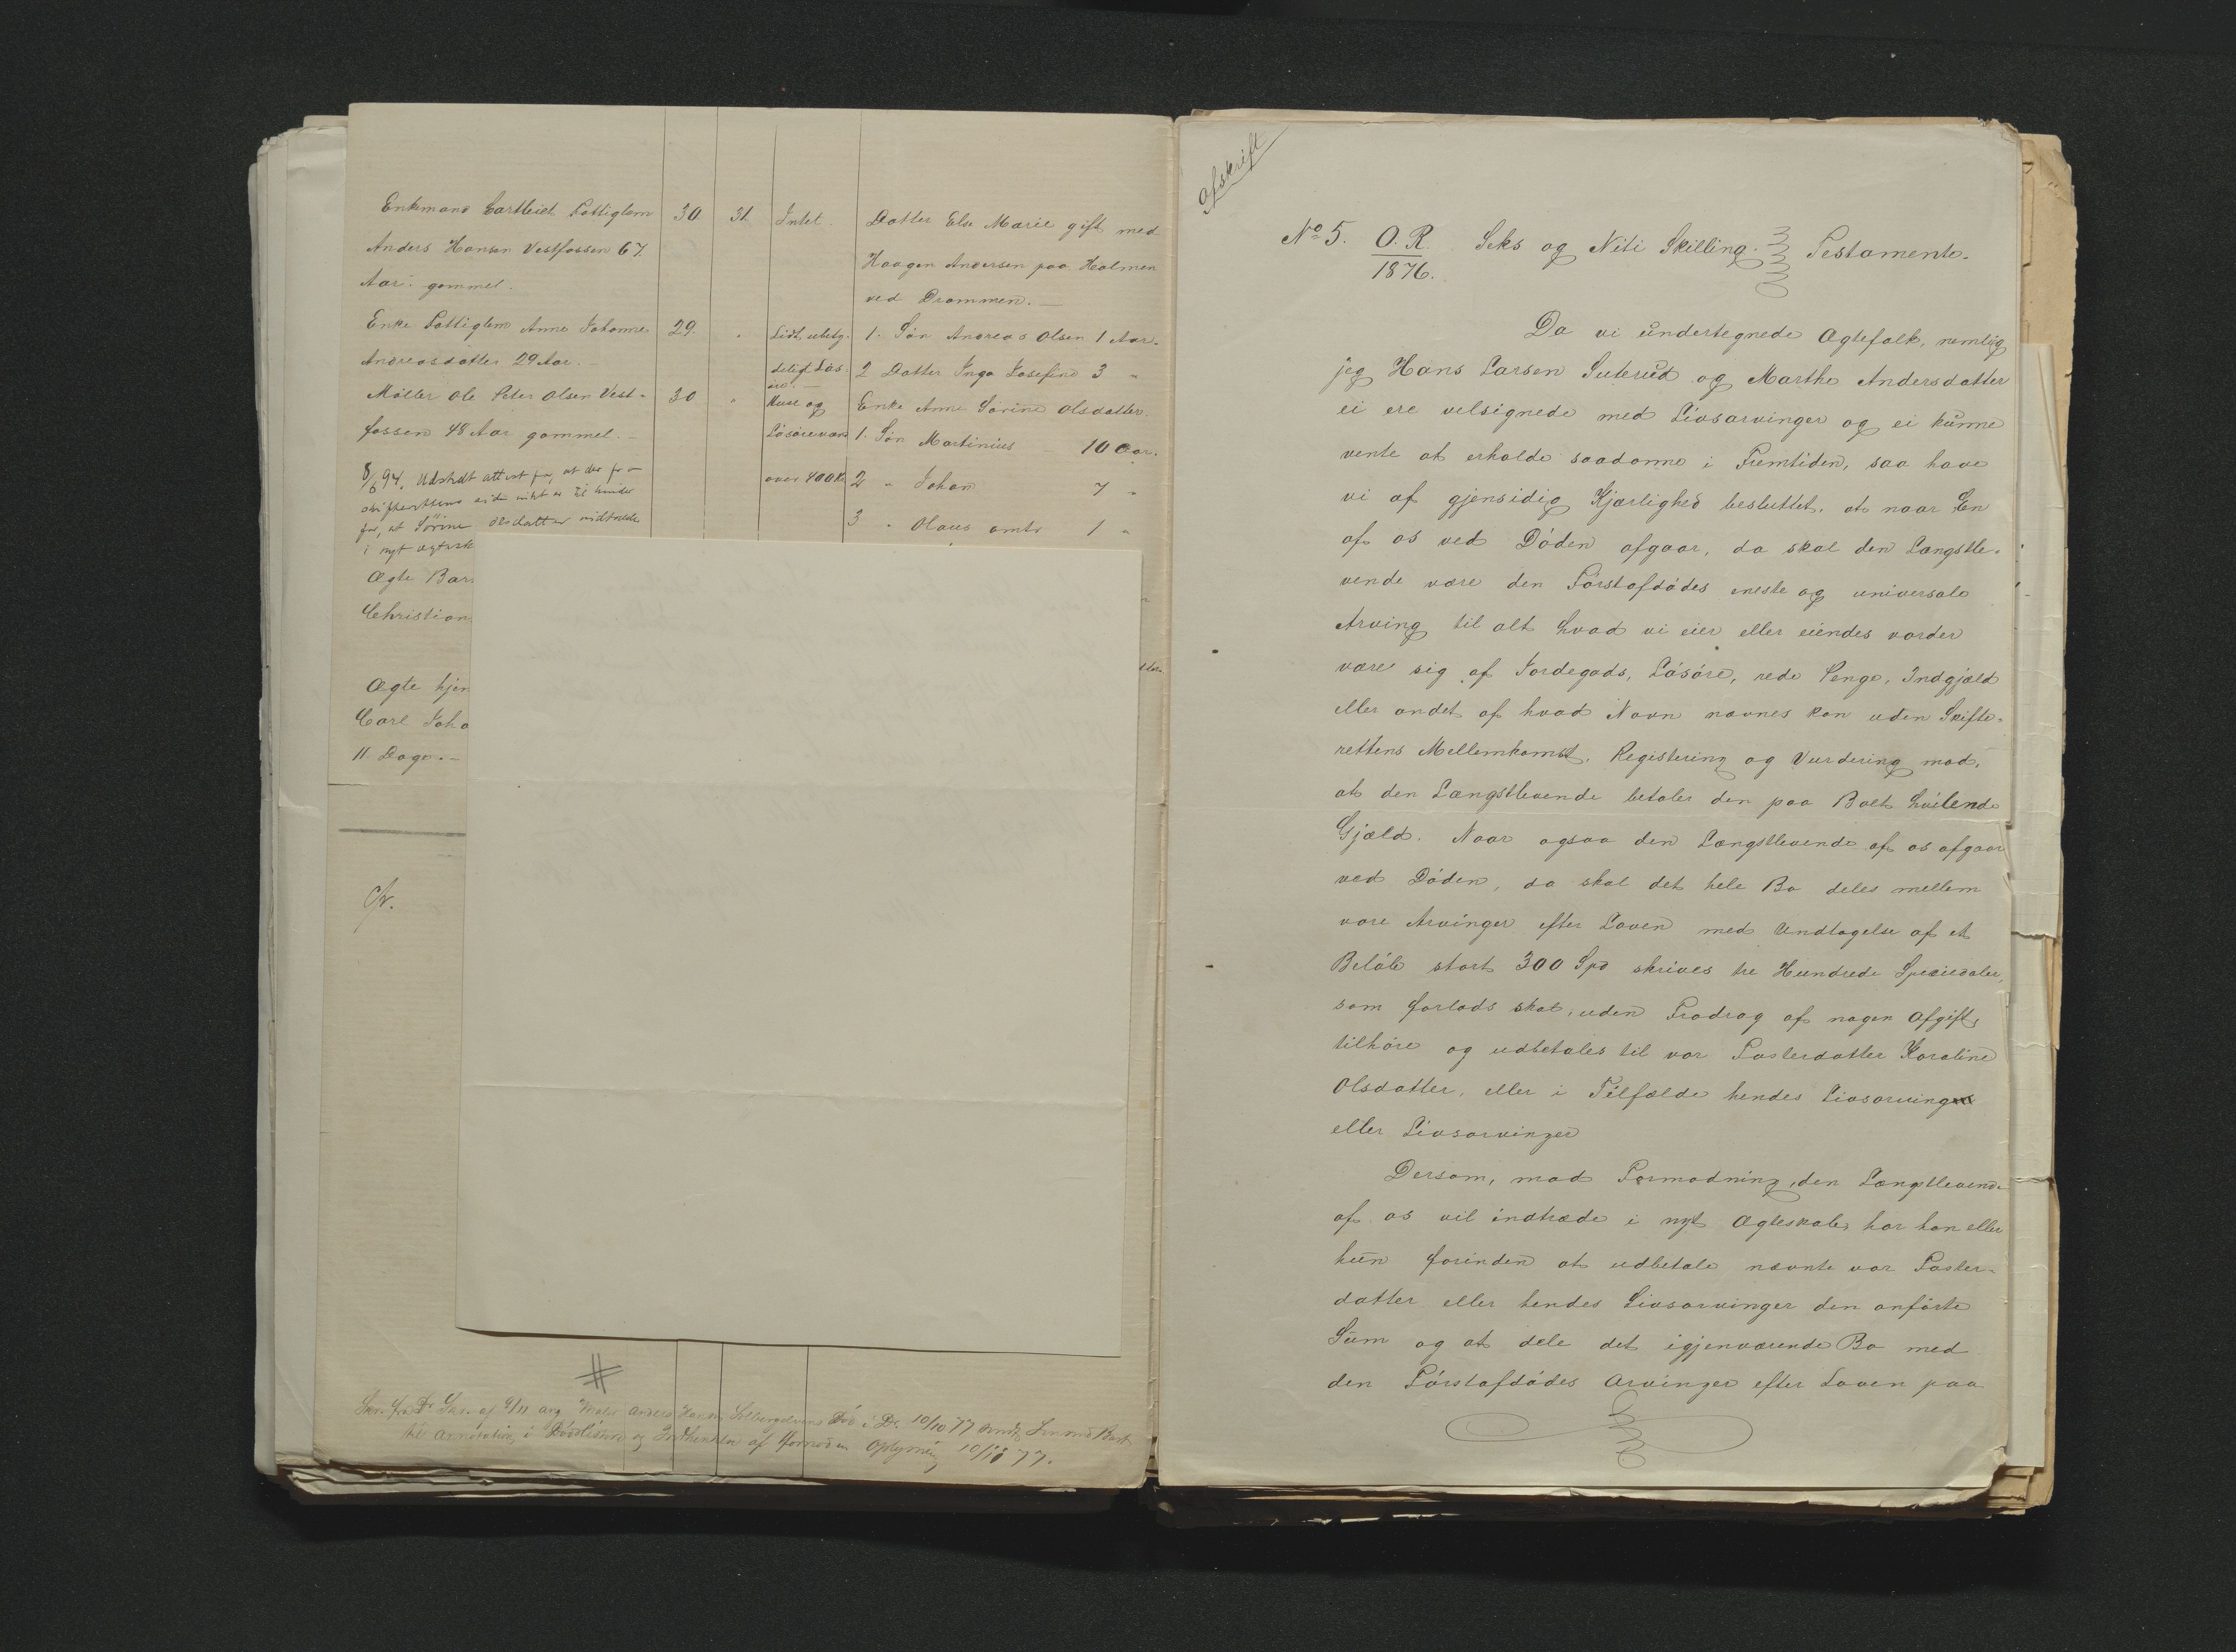 Enkemand Pottiglem
Anders Hansen Vestfossen 67
Aar gammel.
30. 31. Intet.
Datter Else Marie gift med
Haagen Andersen paa Holmen
ved Drammen. —
Enke Anne Johanne
Andreasdatter 29 Aar. —
29. "
Lidt ubety-
delig Løs-
øre. —
1. Søn Andreas Olsen 1 Aar.
2 Datter Inga Josefine 3 "
Møller Ole Peter Olsen Vest-
fossen 48 Aar gammel. —
30 "
Huse og
Løsøre
over 400 Kr
Enke Anne Sørine Olsdatter.
1. Søn Martinius 10 Aar.
2 " Johan 7 "
3 " Olaus 1 "
8/6 94. Udstedt attest for, at der fra
skifterettens side intet er til hinder
for, at Sørine Olsdatter indtræder
i nyt ægtesk
Ægte Bar
Christian
Ægte hjem
Carl Joha
11 Dage. —
#
10/10 77
10/10 77.
Afskrift
No 5. O. R. Seks og Niti Skilling. Testamente.
1876.
Da vi undertegnede Ægtefolk, nemlig
jeg Hans Larsen Suterud og Marthe Andersdatter
ei ere velsignede med Livsarvinger og ei kunne
vente at erholde saadanne i Fremtiden, saa have
vi af gjensidig Kjærlighed besluttet, at naar En
af os ved Døden afgaar, da skal den Længstle-
vende være den Førstafdødes eneste og universale
Arving til alt hvad vi eier eller eiendes vorder
være sig af Jordegods, Løsøre, rede Penge, Indgjæld
eller andet af hvad Navn nævnes kan uden Skifte-
rettens Mellemkomst, Registering og Vurdering mod,
at den Længstlevende betaler den paa Boet hvilende
Gjæld. Naar ogsaa den Længstlevende af os afgaar
ved Døden, da skal det hele Bo deles mellem
vore Arvinger efter Loven med Undtagelse af et
Beløb stort 300 Spd skrives tre Hundrede Speciedaler,
som forlods skal, uden Fradrag af nogen Afgift,
tilhøre og udbetales til vor Fosterdatter Karoline
Olsdatter, eller i Tilfælde hendes Livsarvinger
eller Livsarvinger
Dersom, mod Formodning, den Længstlevende
af os vil indtræde i nyt Ægteskab, har han eller
hun forinden at udbetale nævnte vor Foster-
datter eller hendes Livsarvinger den anførte
Sum og at dele det igjenværende Bo med
den Førstafdødes Arvinger efter Loven paa